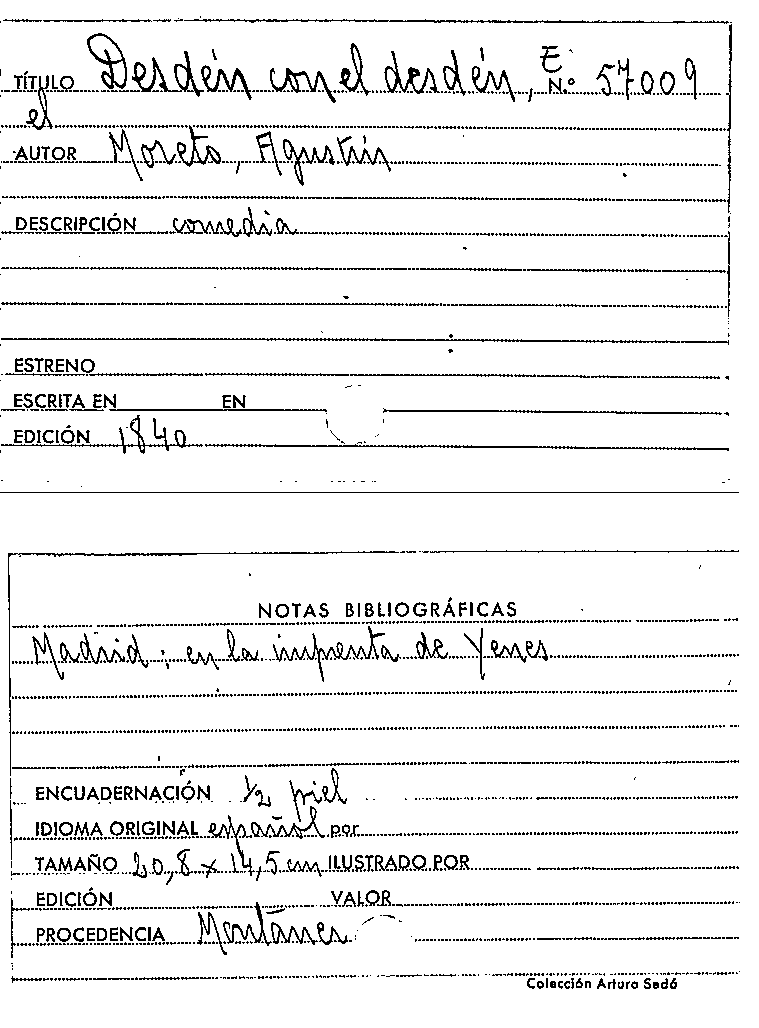 TÍTULO Desdén con el desdén, E. N.º 57009
el
AUTOR Moreto, Agustín
DESCRIPCIÓN comedia
ESTRENO
ESCRITA EN EN
EDICIÓN 1840
NOTAS BIBLIOGRÁFICAS
Madrid: en la imprenta de Yenes
ENCUADERNACIÓN ½ piel
IDIOMA ORIGINAL español por
TAMAÑO 20,8 x 14,5 cm ILUSTRADO POR
EDICIÓN VALOR
PROCEDENCIA Montañes
Colección Arturo Sedó